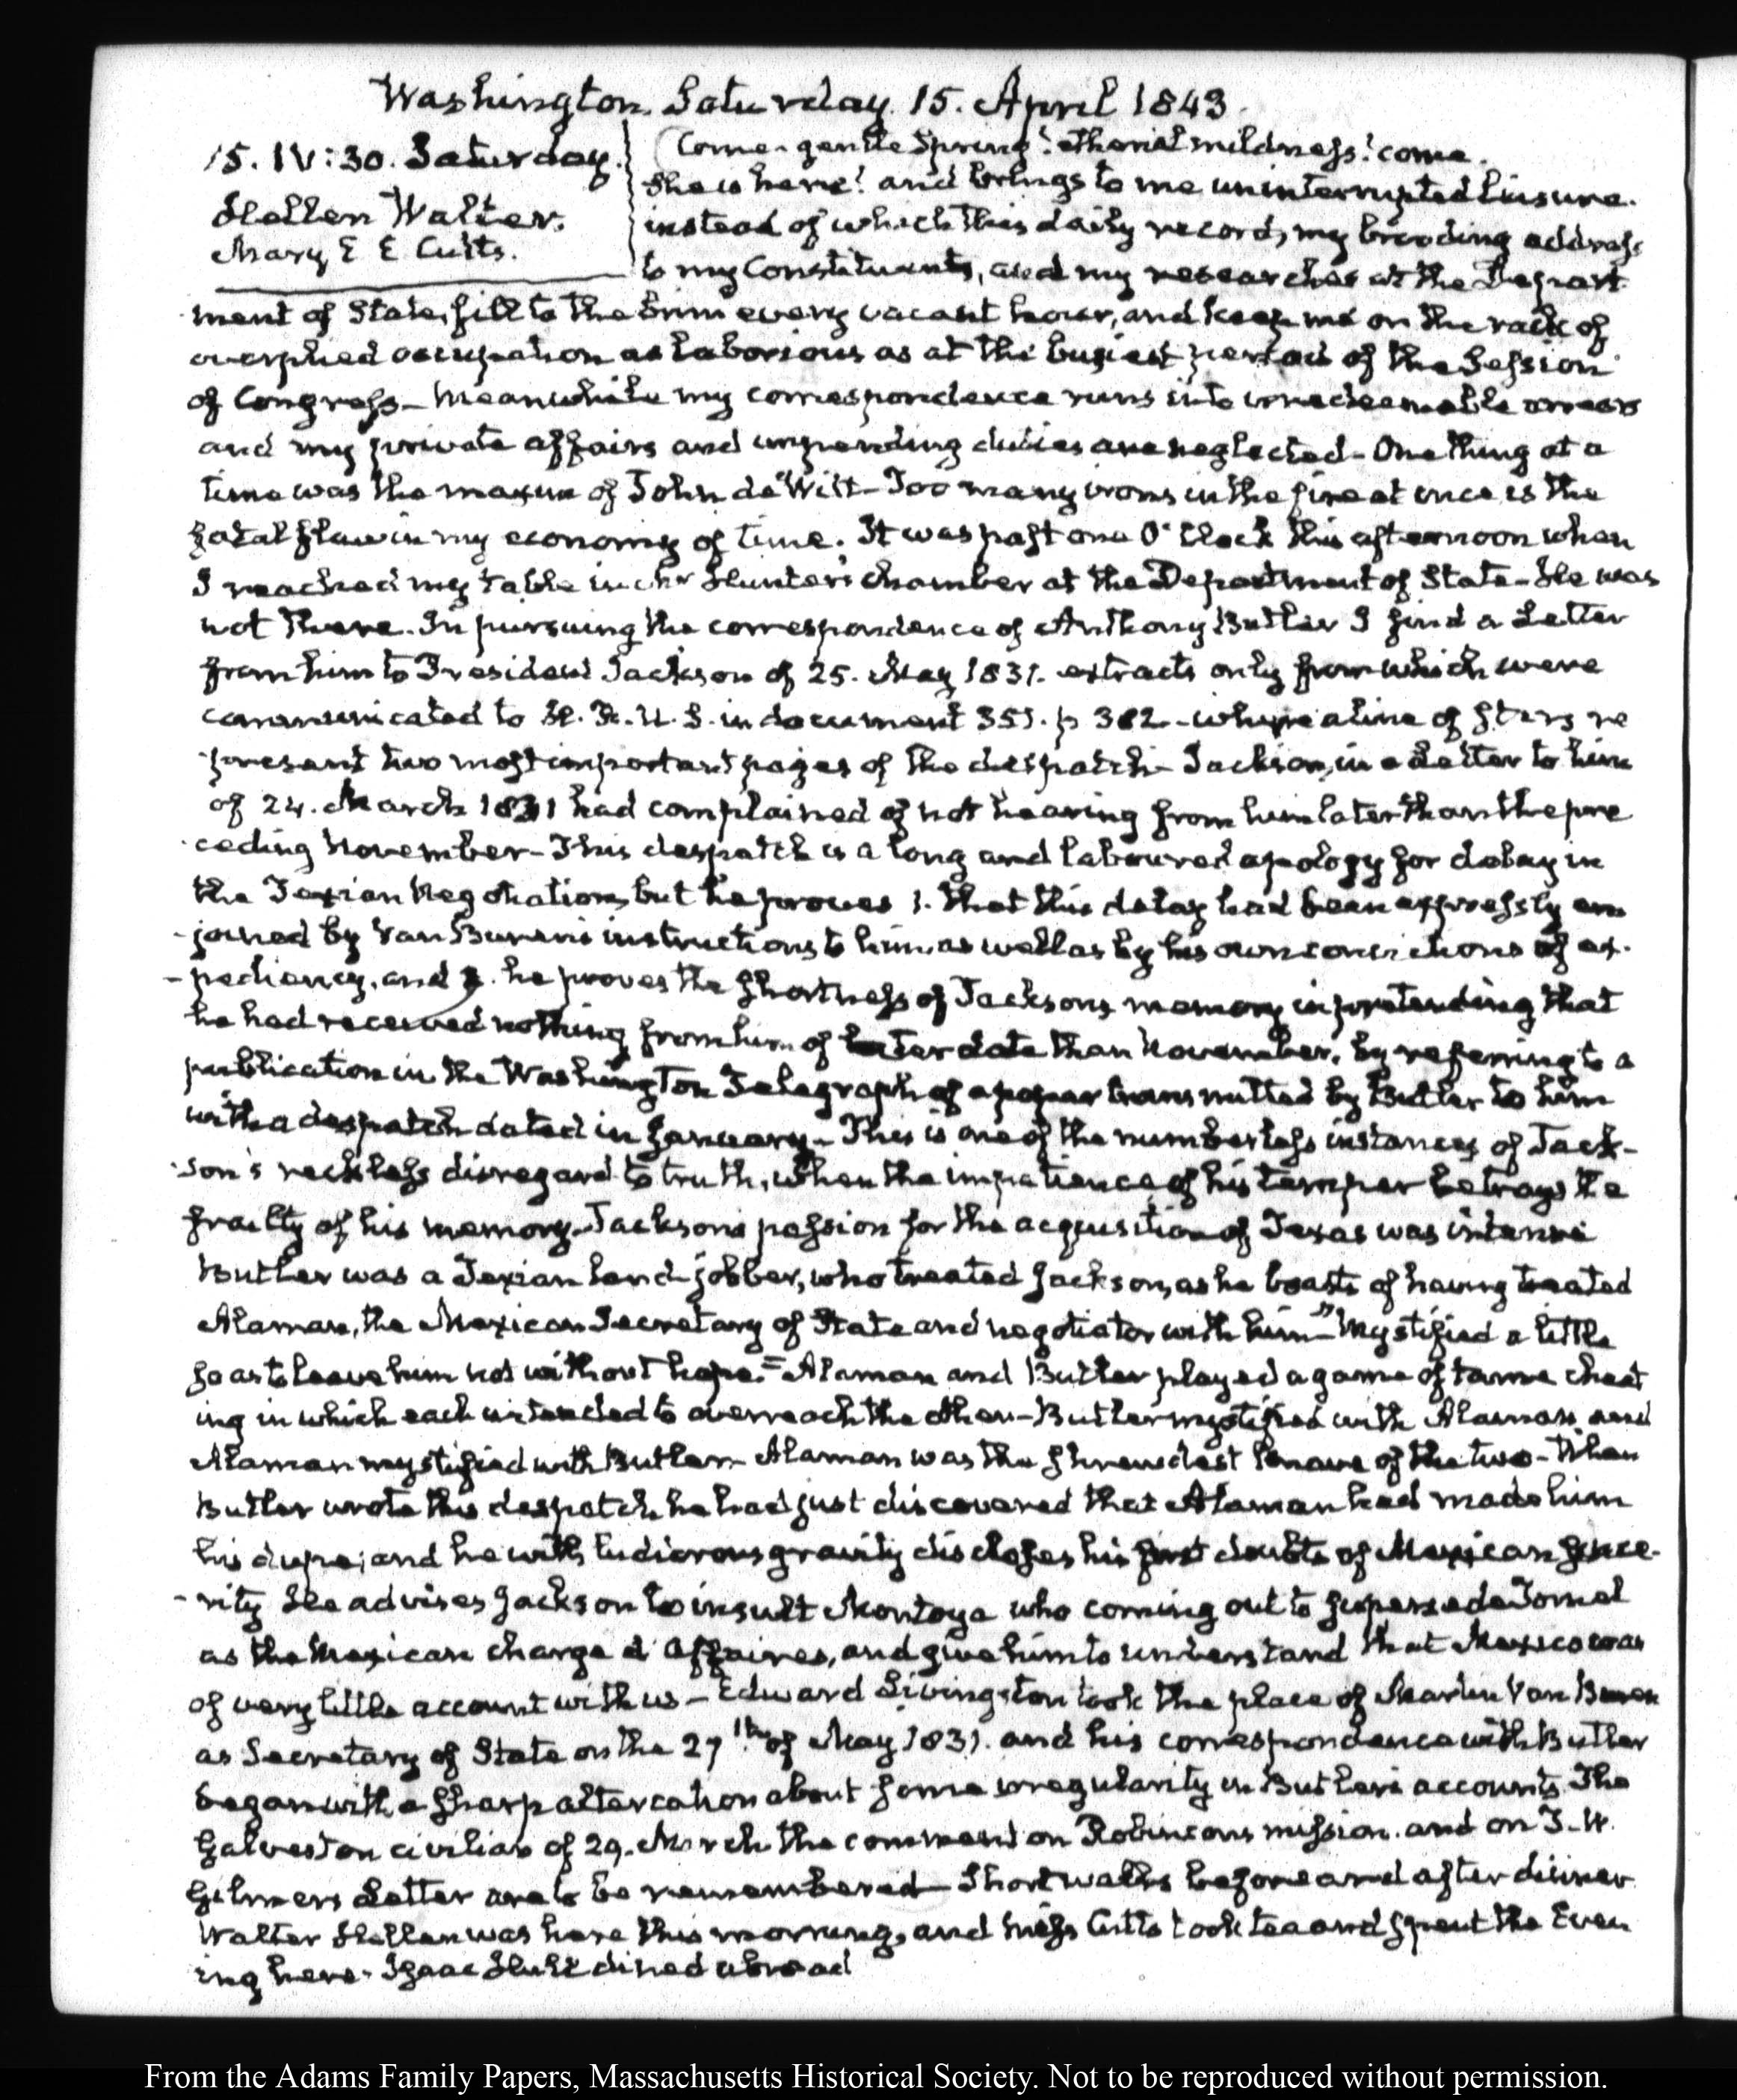 Washington. Saturday. 15. April 1843.
15. IV:30. Saturday.
Hellen Walter.
Mary E E Cutts.
Come gentle Spring! etherial mildness! come.
She is here! and brings to me uninterrupted leisure.
instead of which this daily record, my brooding address
to my Constituents, and my researches at the Depart
ment of State, fill to the brim every vacant hour, and keep me on the rack of
overplied occupation as laborious as at the busiest period of the Session
of Congress – Meanwhile my correspondence runs into irredeemable arrears
and my private affairs and impending duties are neglected – One thing at a
time was the maxim of John de Witt – Too many irons in the fire at once is the
fatal flaw in my economy of time. It was past one O'Clock this afternoon when
I reached my table in Mr Hunter's chamber at the Department of State – He was
not there. In pursuing the correspondence of Anthony Butler I find a Letter
from him to President Jackson of 25. May 1831. extracts only from which were
communicated to H. R. U. S. in document 351. p 382 – where a line of stars re
present two most important pages of the despatch – Jackson, in a Letter to him
of 24. March 1831 had complained of not hearing from him later than the pre
ceding November – This despatch is a long and laboured apology for delay in
the Texian Negotiation, but he proves 1. that this delay had been expressly en
-joined by Van Buren's instructions to him, as well as by his own convictions of ex-
-pediency, and 2. he proves the shortness of Jackson's memory in pretending that
he had received nothing from him of later date than November, by referring to a
publication in the Washington Telegraph of a paper transmitted by Butler to him
with a despatch dated in January – This is one of the numberless instances of Jack-
son's reckless disregard to truth, when the impatience of his temper betrays the
frailty of his memory. Jackson's passion for the acquisition of Texas was intense
Butler was a Texian land-jobber, who treated Jackson, as he boasts of having treated
Alaman, the Mexican Secretary of State and negotiator with him – "Mystified a little
so as to leave him not without hope." Alaman and Butler played a game of tame cheat
ing in which each intended to overreach the other – Butler mystified with Alaman and
Alaman mystified with Butler – Alaman was the shrewdest knave of the two – When
Butler wrote this despatch, he had just discovered that Alaman had made him
his dupe; and he with ludicrous gravity discloses his first doubts of Mexican since-
-rity He advises Jackson to insult Montoya who coming out to supersede Tornel
as the Mexican chargé d'Affaires, and give him to understand that Mexico was
of very little account with us – Edward Livingston took the place of Martin Van Buren
as Secretary of State on the 27th of May 1831. and his correspondence with Butler
began with a sharp altercation about some irregularity in Butler's accounts. The
Galveston civilian of 29. March the comment on Robinson's mission. and on T. W.
Gilmers Letter are to be remembered – Short walks before and after dinner
Walter Hellen was here this morning, and Miss Cutts took tea and spent the Even
ing here – Isaac Hull dined abroad
From the Adams Family Papers, Massachusetts Historical Society. Not to be reproduced without permission.